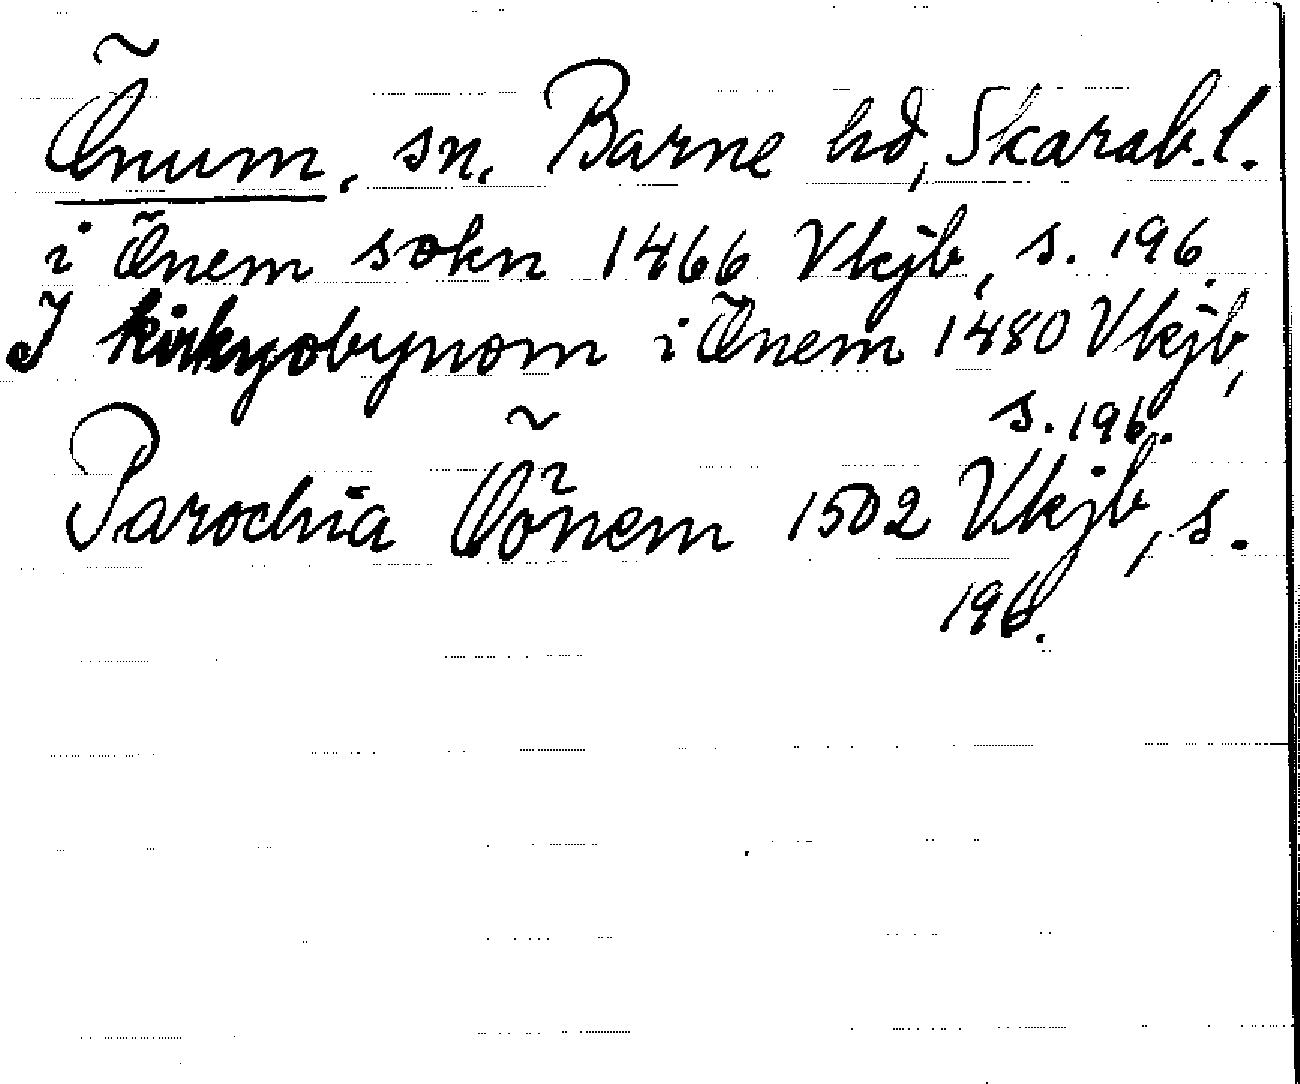 Õnum, sn, Barne hd, Skarab.l.
i Õnem sokn 1466 Vkjb, s. 196.
I kirkyobynom i Õnem 1480 Vkjb,
s. 196.
Parochia Õõnem 1502 Vkjb, s.
196.